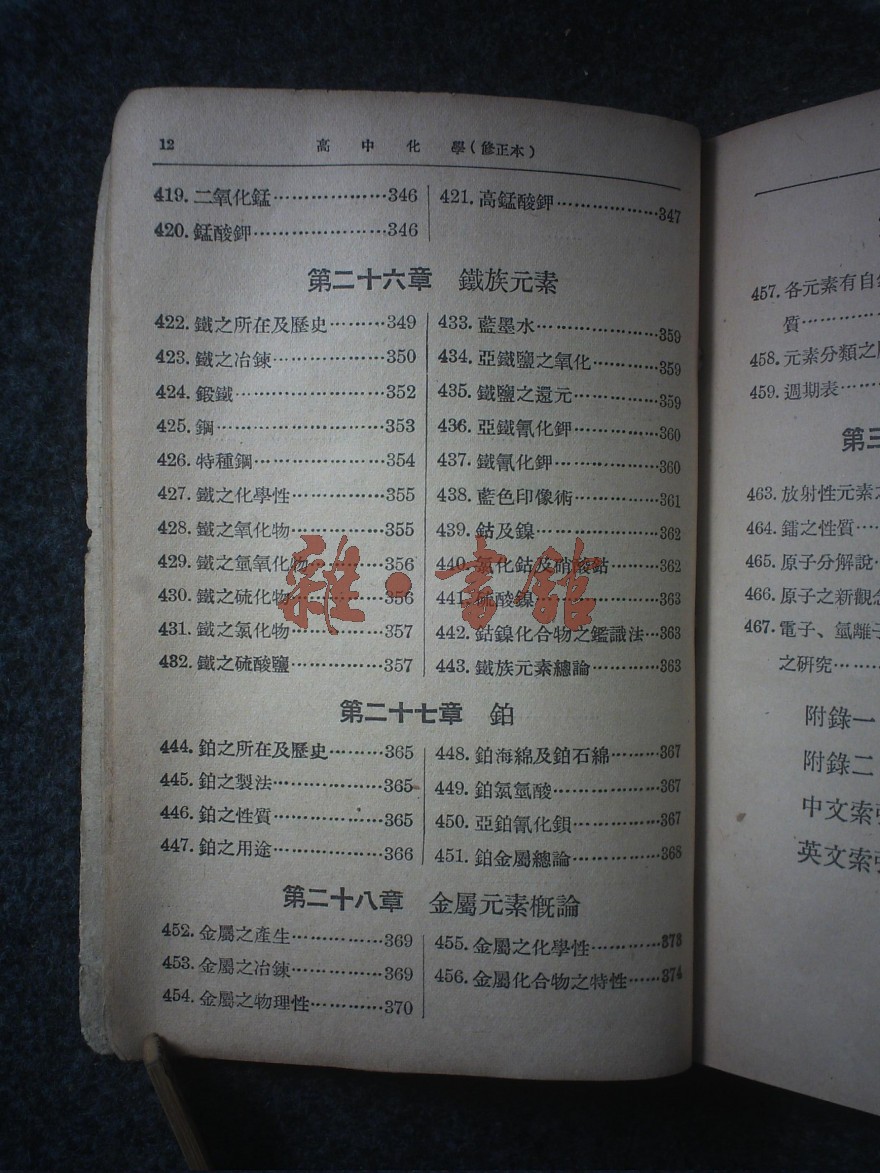 12 高中化學(修正本)
419. 二氧化錳………………346
420. 錳酸鉀…………………346
421. 高錳酸鉀………………347
第二十六章 鐵族元素
422. 鐵之所在及歷史………349
423. 鐵之冶鍊………………350
424. 鍛鐵……………………352
425. 鋼………………………353
426. 特種鋼…………………354
427. 鐵之化學性……………355
428. 鐵之氧化物……………355
429. 鐵之氫氧化物…………356
430. 鐵之硫化物……………356
431. 鐵之氯化物……………357
432. 鐵之硫酸鹽……………357
433. 藍墨水…………………359
434. 亞鐵鹽之氧化…………359
435. 鐵鹽之還元……………359
436. 亞鐵氰化鉀……………360
437. 鐵氰化鉀………………360
438. 藍色印像術……………361
439. 鈷及鎳…………………362
440. 氯化鈷及硝酸鈷………362
441. 硫酸鎳…………………363
442. 鈷鎳化合物之鑑識法…363
443. 鐵族元素總論…………363
第二十七章 鉑
444. 鉑之所在及歷史………365
445. 鉑之製法………………365
446. 鉑之性質………………365
447. 鉑之用途………………366
448. 鉑海綿及鉑石綿………367
449. 鉑氯氫酸………………367
450. 亞鉑氰化鋇……………367
451. 鉑金屬總論……………368
第二十八章 金屬元素概論
452. 金屬之產生……………369
453. 金屬之冶鍊……………369
454. 金屬之物理性…………370
455. 金屬之化學性…………373
456. 金屬化合物之特性……374
雜·書館
457. 各元素有自
質……………
458. 元素分類之
459. 週期表………
第三
463. 放射性元素
464. 鐳之性質……
465. 原子分解說…
466. 原子之新觀念
467. 電子、氫離子
之研究………
附錄一
附錄二
中文索
英文索